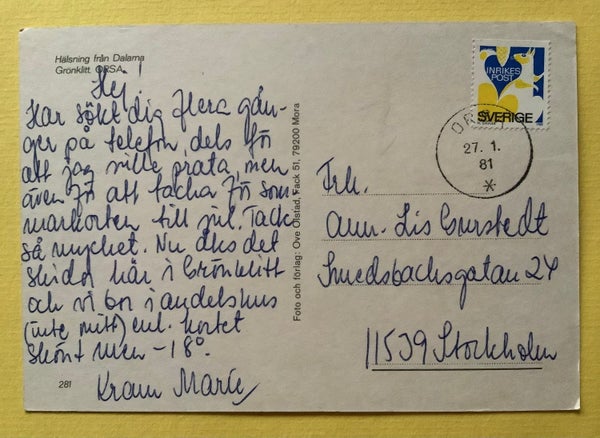 Hälsning från Dalarna
Grönklitt, ORSA
Hej!
Har sökt dig flera gån-
ger på telefon, dels för
att jag ville prata, men
även för att tacka för som
markorten till jul. Tack
så mycket. Nu åks det
skidor här i Grönklitt
och vi bor i andelshus
(inte mitt) enl. kortet
Skönt men -18°.
Kram Marie
281
Foto och förlag: Ove Olstad, Fack 51, 79200 Mora
INRIKES
POST
SVERIGE
27. 1.
81
Frk.
Ann-Lis
Smedsbacksgatan 24
11539 Stockholm